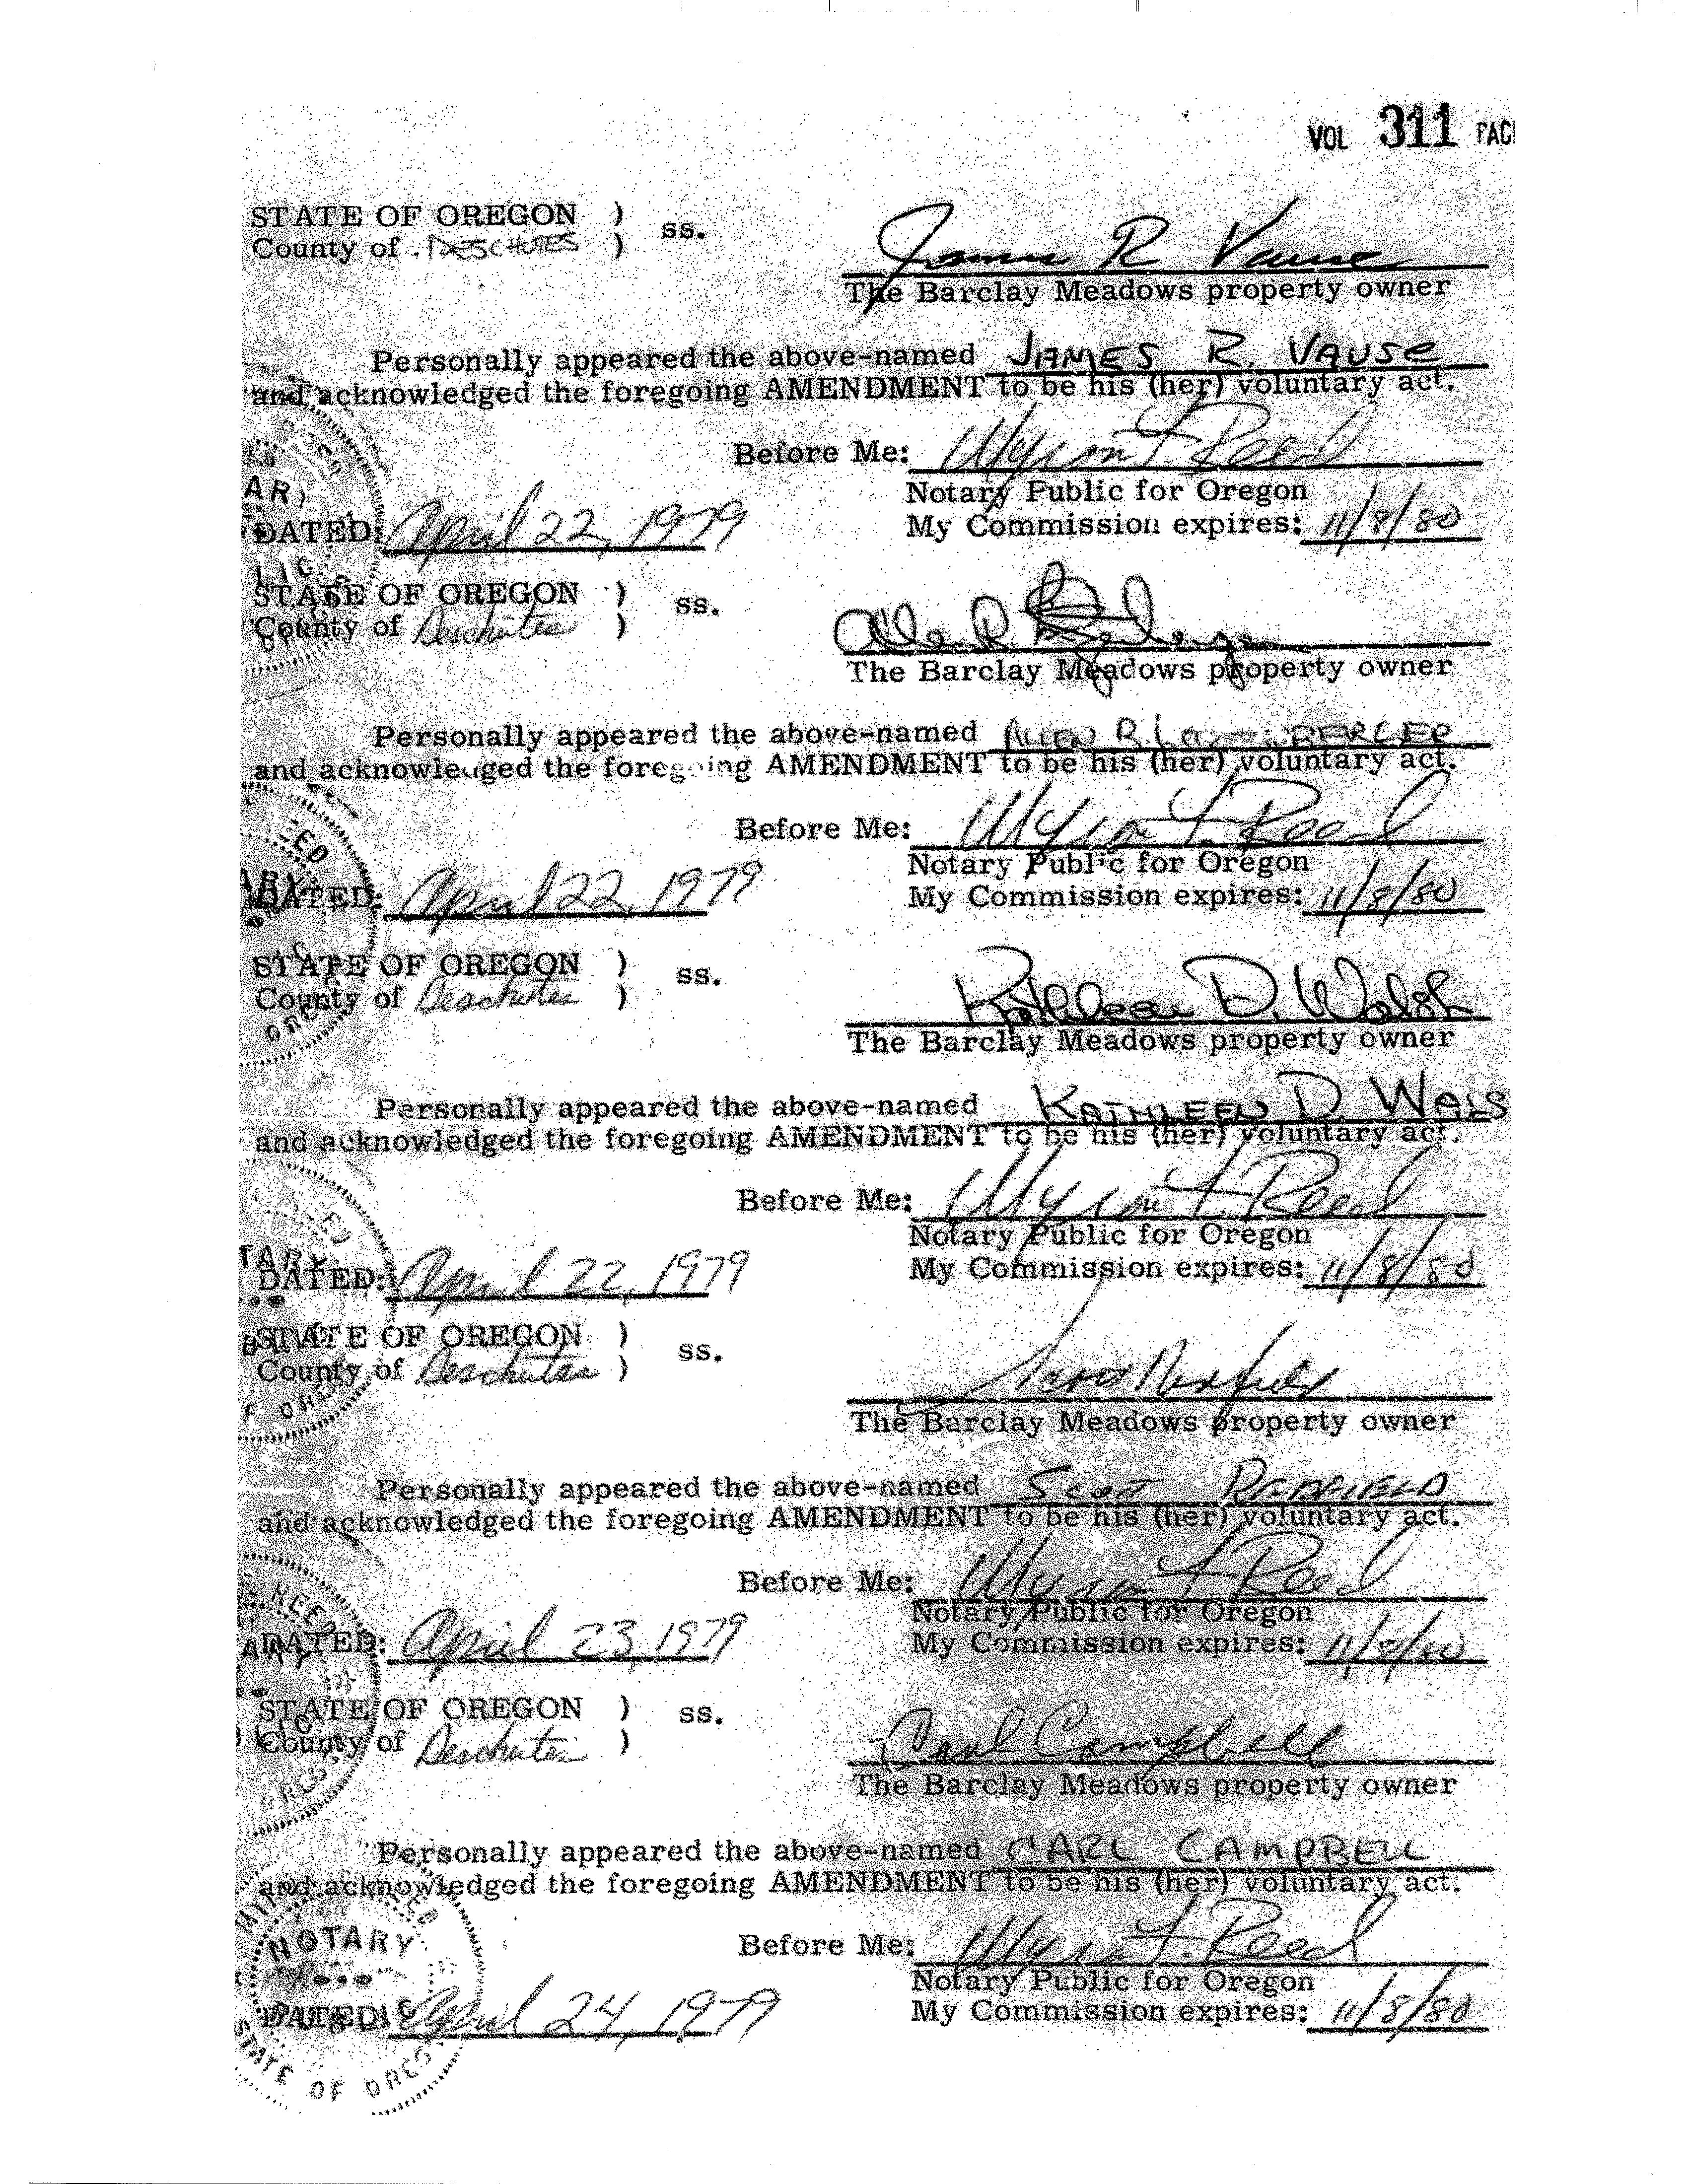 VOL 311 PAG
STATE OF OREGON ) ss.
County of DESCHUTES )
James R Vause
The Barclay Meadows property owner
Personally appeared the above-named JAMES R. VAUSE
and acknowledged the foregoing AMENDMENT to be his (her) voluntary act.
Before Me: Myron F. Reed
Notary Public for Oregon
My Commission expires: 11/8/80
DATED: April 22, 1979
STATE OF OREGON ) ss.
County of Deschutes )
The Barclay Meadows property owner
Personally appeared the above-named ALLEN R
and acknowledged the foregoing AMENDMENT to be his (her) voluntary act.
Before Me: Myron F. Reed
Notary Public for Oregon
My Commission expires: 11/8/80
DATED: April 22, 1979
STATE OF OREGON ) ss.
County of Deschutes )
Kathleen D. Walsh
The Barclay Meadows property owner
Personally appeared the above-named KATHLEEN D WALS
and acknowledged the foregoing AMENDMENT to be his (her) voluntary act.
Before Me: Myron F. Reed
Notary Public for Oregon
My Commission expires: 11/8/80
DATED: April 22, 1979
STATE OF OREGON ) ss.
County of Deschutes )
The Barclay Meadows property owner
Personally appeared the above-named SCOT
and acknowledged the foregoing AMENDMENT to be his (her) voluntary act.
Before Me: Myron F. Reed
Notary Public for Oregon
My Commission expires: 11/8/80
DATED: April 23, 1979
STATE OF OREGON ) ss.
County of Deschutes )
Carl Campbell
The Barclay Meadows property owner
Personally appeared the above-named CARL CAMPBELL
and acknowledged the foregoing AMENDMENT to be his (her) voluntary act.
NOTARY
Before Me: Myron F. Reed
Notary Public for Oregon
My Commission expires: 11/8/80
DATED: April 24, 1979
STATE OF OREG